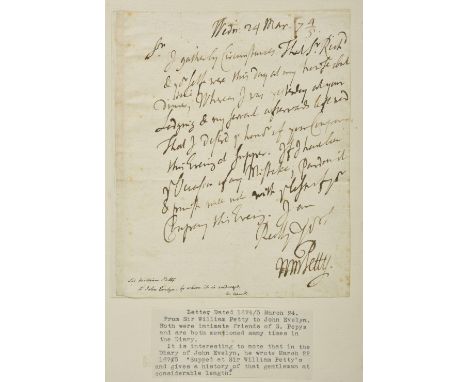 Wedn. 24 Mar. 7 4/5
Sr.
I gather by Circumstances That Sr. Rich'd
& yr selfe were this day at my house about
Dinner, Whereas I was yesterday at your
Lodging & my servant afterwards
That I desired ye honor of your Company
this Evening at Supper.
ye Occasion of my Mistake, Pardon it
& punish mee not with ye losse of yr
Company this Evening. I am
Wm Petty.
Sir William Petty
to John Evelyn, by whom it is endorsed,
Letter Dated 1674/5 March 24.
From Sir William Petty to John Evelyn.
Both were intimate friends of S. Pepys
and are both mentioned many times in
the Diary.
It is interesting to note that in the
Diary of John Evelyn, he wrote March 22
1674/5 "Supped at Sir William Petty's"
and gives a history of that gentleman at
considerable length.